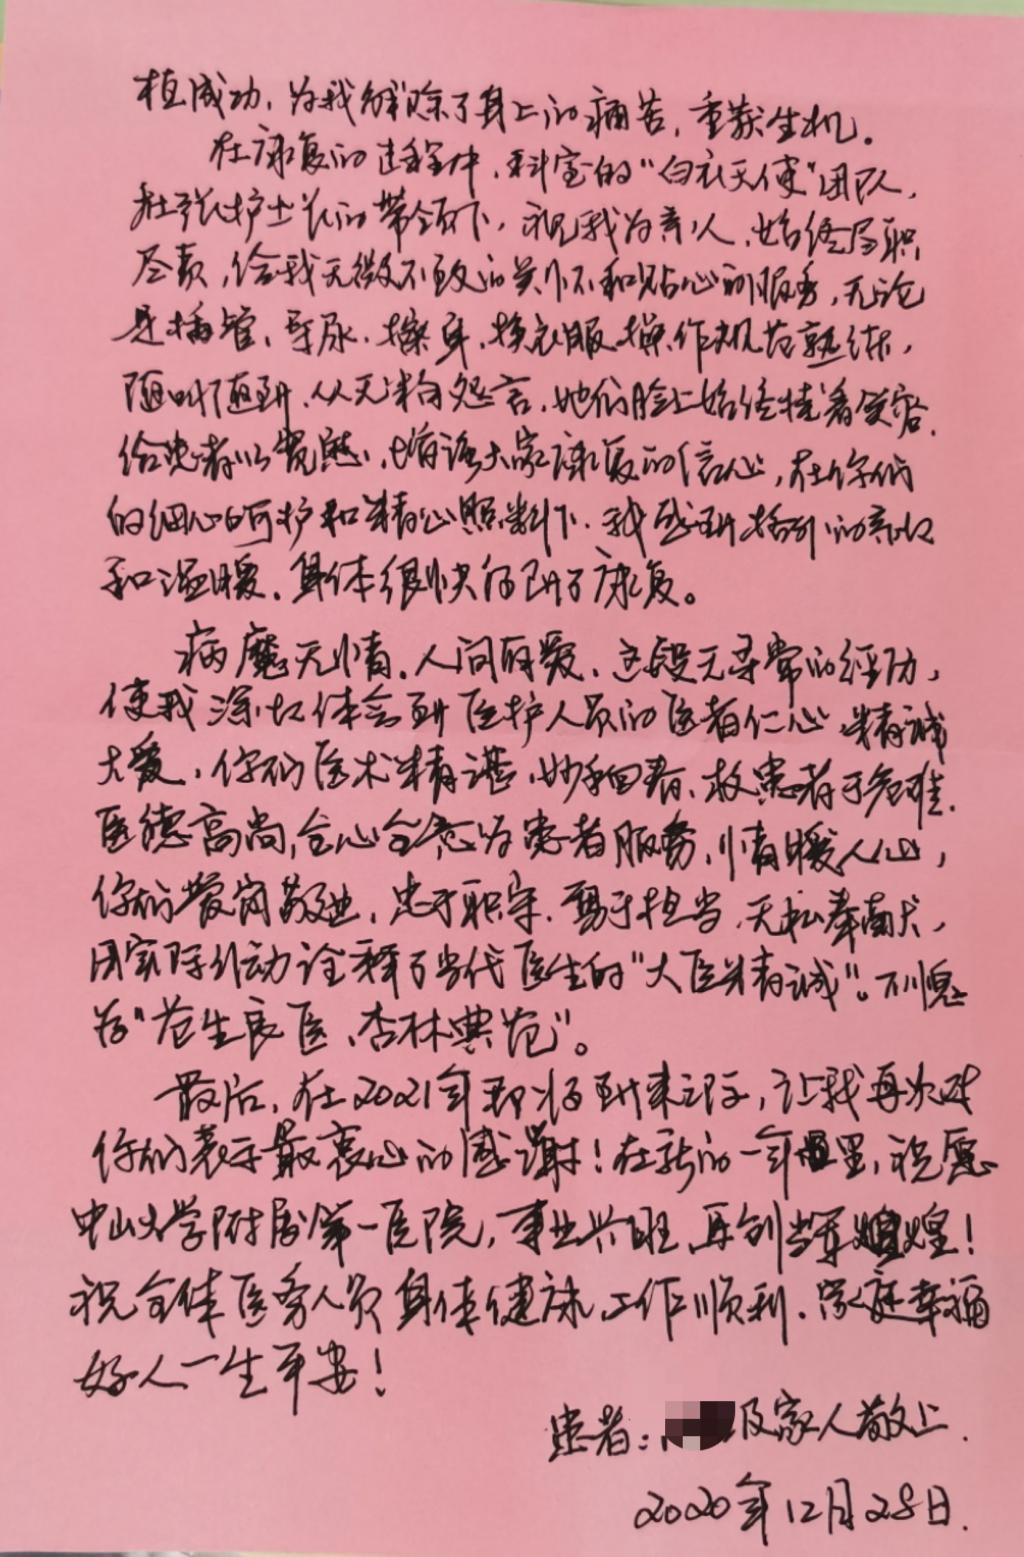 植成功,为我解除了身上的痛苦,重获生机。
在康复的过程中,科室的“白衣天使”团队,
在张护士长的带领下,视我为亲人,始终尽职
尽责,给我无微不致的关怀和贴心的服务,无论
是插管、导尿、擦身、换衣服操作规范熟练,
随叫随到、从无半句怨言,她们脸上始终挂着笑容,
给患者以宽慰,增强大家康复的信心,在你们
的细心呵护和精心照料下,我感到格外的亲切
和温暖,身体很快得到了康复。
病魔无情,人间有爱,这段无寻常的经历,
使我深切体会到医护人员的医者仁心,精诚
大爱,你们医术精湛,妙手回春,救患者于危难,
医德高尚,全心全意为患者服务,情暖人心,
你们爱岗敬业,忠于职守,勇于担当,无私奉献,
用实际行动诠释了当代医生的“大医精诚”。不愧
为“苍生良医、杏林典范”。
最后,在2021年即将到来之际,让我再次对
你们表示最衷心的感谢!在新的一年里,祝愿
中山大学附属第一医院,事业兴旺,再创辉煌!
祝全体医务人员身体健康,工作顺利,家庭幸福
好人一生平安!
患者:及家人敬上.
2020年12月28日.